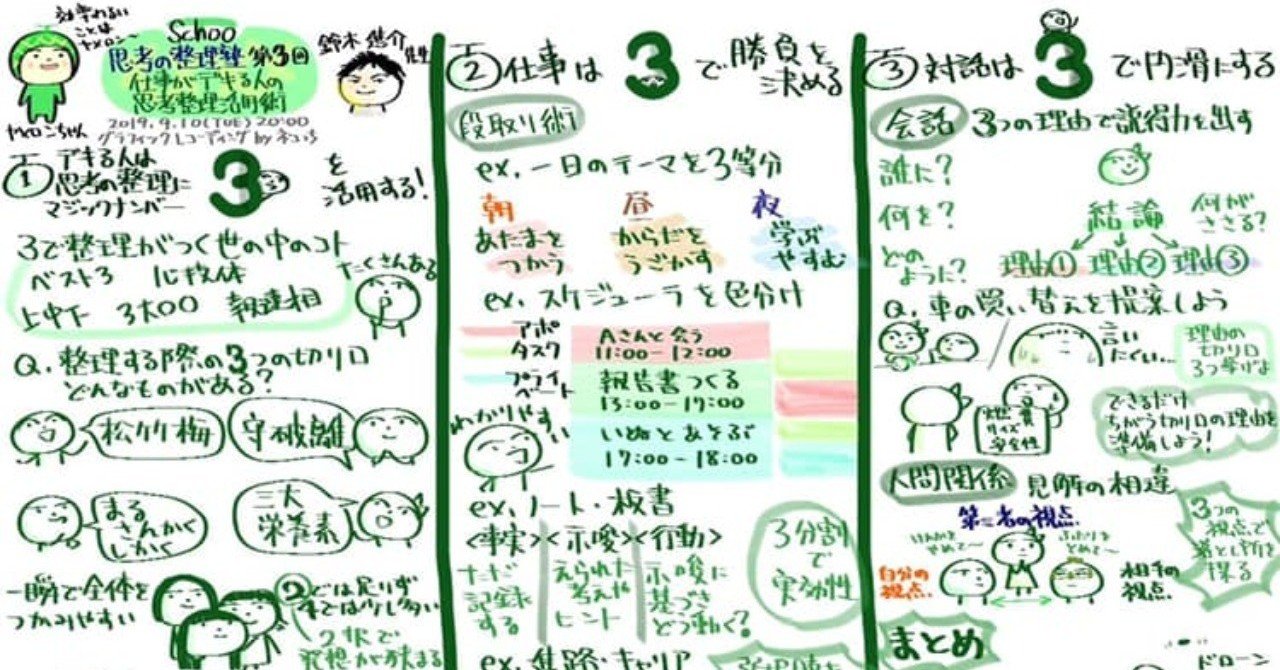 効率わるい
ことは
ヤメロン〜
ヤメロンちゃん
Schoo
思考の整理塾 第3回
仕事がデキる人の
思考整理活用術
2019.9.10(TUE) 20:00
グラフィックレコーディング by
鈴木 悠介 先生
① デキる人は
思考の整理に
マジックナンバー
3 を
活用する!
3で整理がつく世の中のコト
ベスト3 心技体
上中下 3大〇〇 報連相
たくさんある
Q. 整理する際の3つの切り口
どんなものがある?
松竹梅
守破離
まる
さんかく
しかく
三大
栄養素
一瞬で全体を
つかみやすい
2では足りず
4では少し多い
2択で
発想が狭まる
② 仕事は 3 で勝負を
決める
段取り術
ex. 一日のテーマを3等分
朝 昼 夜
あたまを
つかう
からだを
うごかす
学ぶ
やすむ
ex. スケジューラを色分け
アポ
タスク
プライ
ベート
わかりやすい
Aさんと会う
11:00-12:00
報告書つくる
13:00-17:00
いぬとあそぶ
17:00-18:00
ex. ノート・板書
<事実><示唆><行動>
ただ
記録
する
えられた
考えや
ヒント
示唆に
基づき
どう動く?
3分割
で
実効性
ex. 進路・キャリア
③ 対話は 3 で円滑にする
会話 3つの理由で説得力を出す
誰に?
何を?
どの
ように?
結論
何が
ささる?
理由① 理由② 理由③
Q. 車の買い替えを提案しよう
言い
にくい...
理由の
切り口
3つ挙げよ
燃費
サイズ
安全性
できるだけ
ちがう切り口の理由を
準備しよう!
人間関係 見解の相違
第三者の視点
けんかを
やめて〜
ふたりを
とめて〜
自分の
視点
相手の
視点
3つの
視点で
落とし所を
探る
まとめ
ドローン